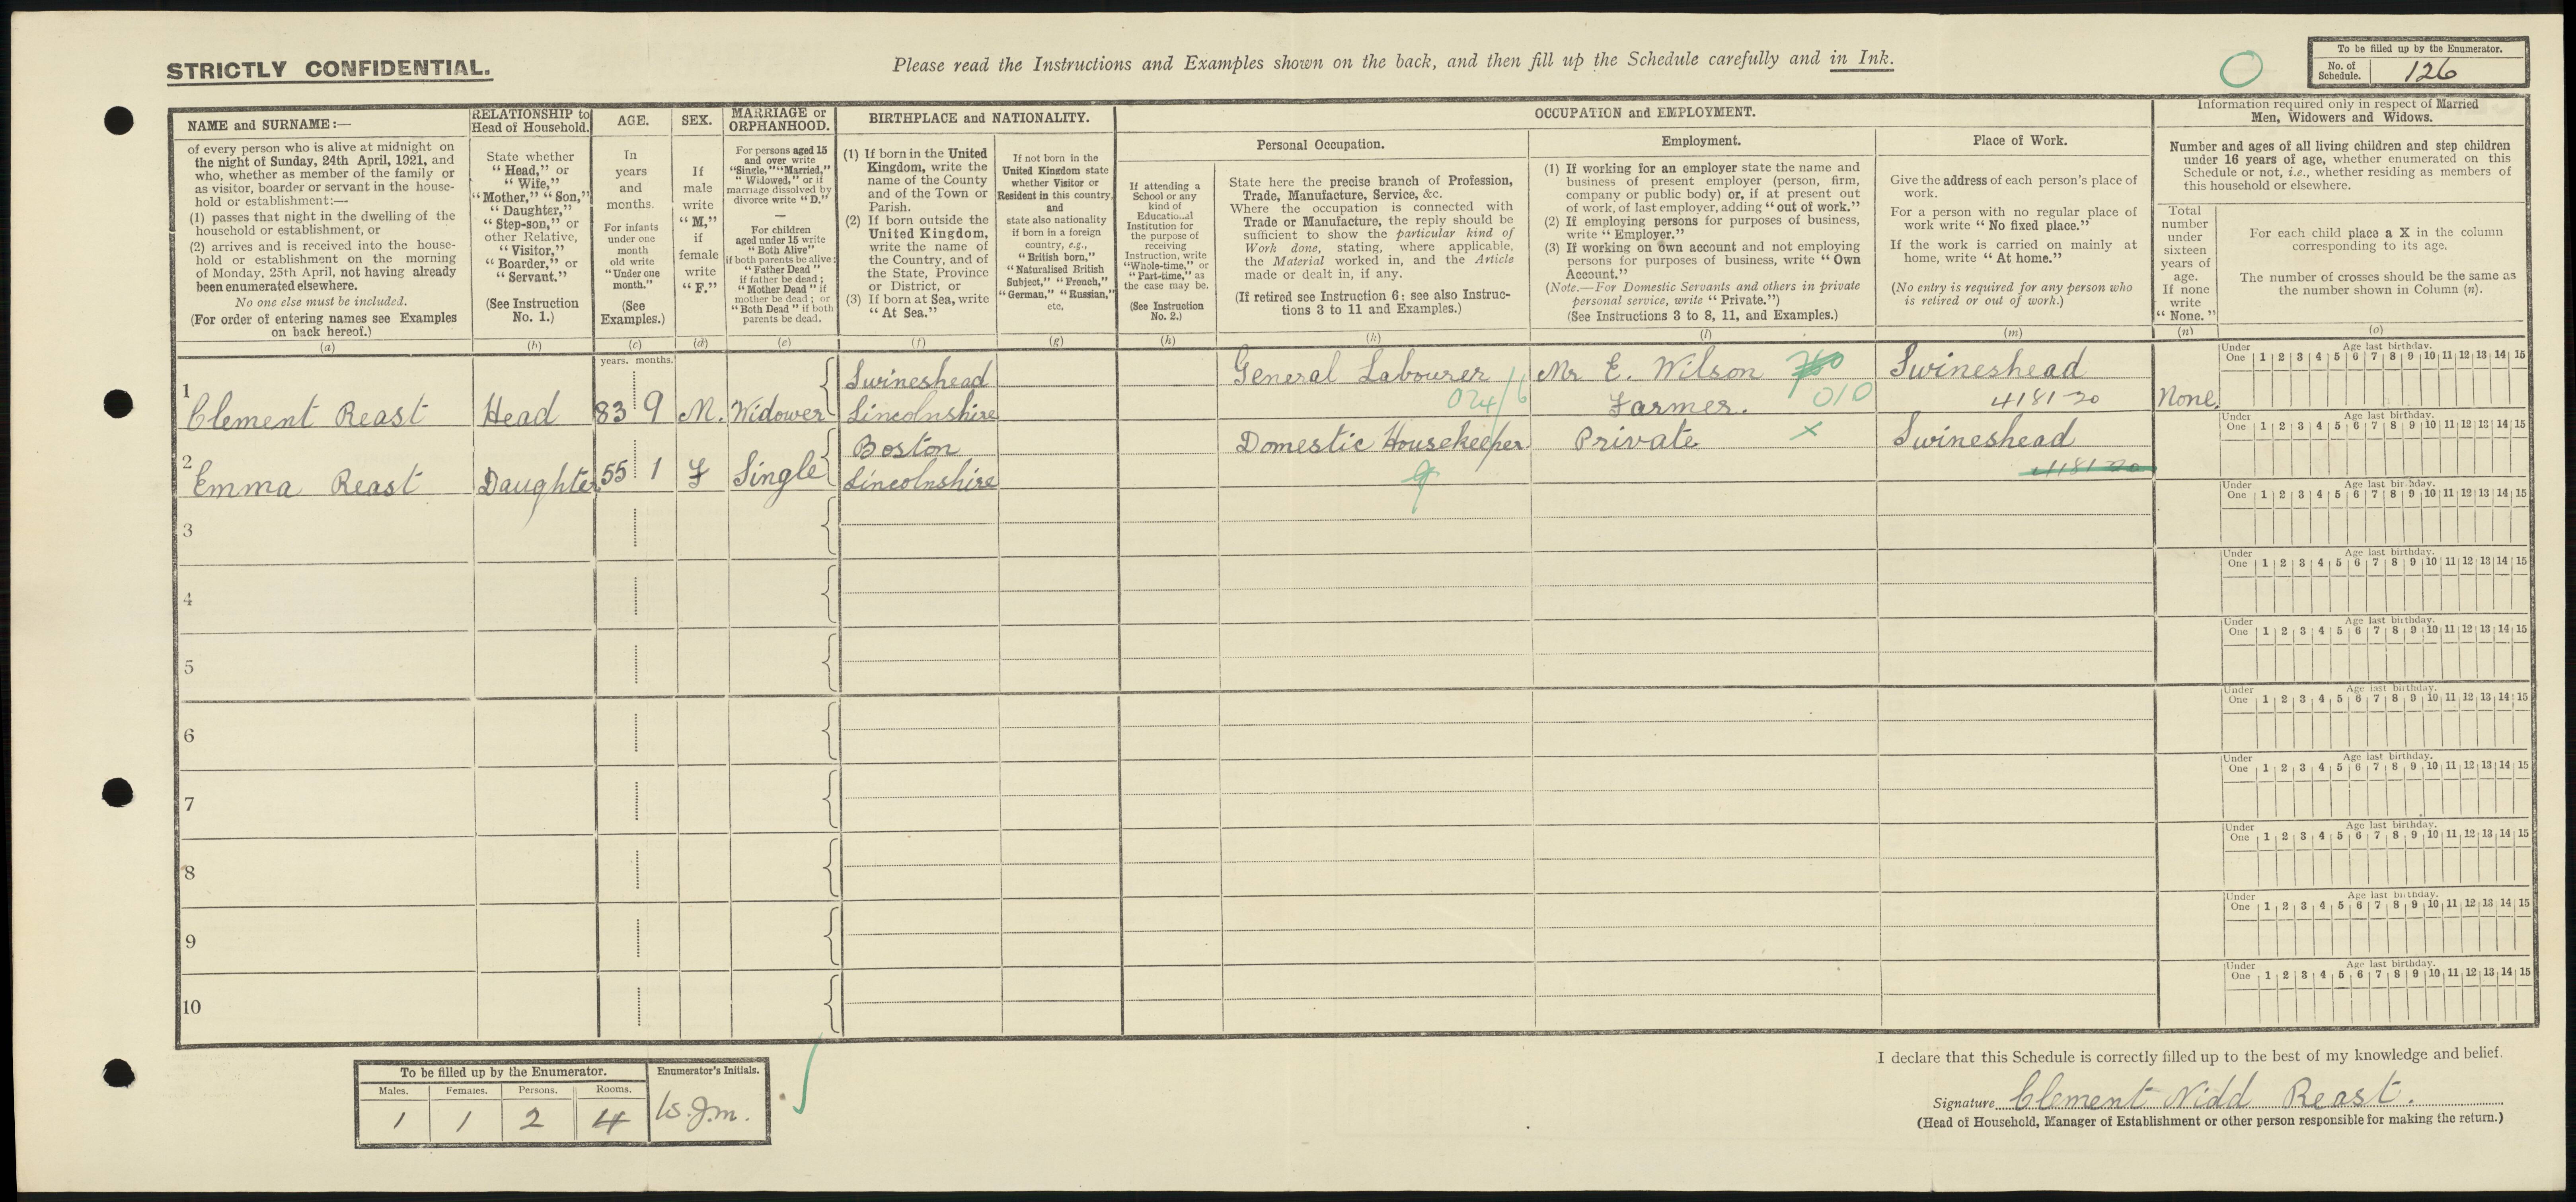 STRICTLY CONFIDENTIAL.
Please read the Instructions and Examples shown on the back, and then fill up the Schedule carefully and in Ink.
To be filled up by the Enumerator.
No. of Schedule. 126
NAME and SURNAME:—
of every person who is alive at midnight on
the night of Sunday, 24th April, 1921, and
who, whether as member of the family or
as visitor, boarder or servant in the house-
hold or establishment:—
(1) passes that night in the dwelling of the
household or establishment, or
(2) arrives and is received into the house-
hold or establishment on the morning
of Monday, 25th April, not having already
been enumerated elsewhere.
No one else must be included.
(For order of entering names see Examples
on back hereof.)
(a)
RELATIONSHIP to
Head of Household.
State whether
"Head," or
"Wife,"
"Mother," "Son,"
"Daughter,"
"Step-son," or
other Relative,
"Visitor,"
"Boarder," or
"Servant."
(See Instruction
No. 1.)
(b)
AGE.
In
years
and
months.
For infants
under one
month
old write
"Under one
month."
(See
Examples.)
(c)
SEX.
If
male
write
"M,"
if
female
write
"F."
(d)
MARRIAGE or
ORPHANHOOD.
For persons aged 15
and over write
"Single," "Married,"
"Widowed," or if
marriage dissolved by
divorce write "D."
—
For children
aged under 15 write
"Both Alive"
if both parents be alive;
"Father Dead"
if father be dead;
"Mother Dead" if
mother be dead; or
"Both Dead" if both
parents be dead.
(e)
BIRTHPLACE and NATIONALITY.
(1) If born in the United
Kingdom, write the
name of the County
and of the Town or
Parish.
(2) If born outside the
United Kingdom,
write the name of
the Country, and of
the State, Province
or District, or
(3) If born at Sea, write
"At Sea."
(f)
If not born in the
United Kingdom state
whether Visitor or
Resident in this country,
and
state also nationality
if born in a foreign
country, e.g.,
"British born,"
"Naturalised British
Subject," "French,"
"German," "Russian,"
etc.
(g)
OCCUPATION and EMPLOYMENT.
If attending a
School or any
kind of
Educational
Institution for
the purpose of
receiving
Instruction, write
"Whole-time," or
"Part-time," as
the case may be.
(See Instruction
No. 2.)
(h)
Personal Occupation.
State here the precise branch of Profession,
Trade, Manufacture, Service, &c.
Where the occupation is connected with
Trade or Manufacture, the reply should be
sufficient to show the particular kind of
Work done, stating, where applicable,
the Material worked in, and the Article
made or dealt in, if any.
(If retired see Instruction 6: see also Instruc-
tions 3 to 11 and Examples.)
(k)
Employment.
(1) If working for an employer state the name and
business of present employer (person, firm,
company or public body) or, if at present out
of work, of last employer, adding "out of work."
(2) If employing persons for purposes of business,
write "Employer."
(3) If working on own account and not employing
persons for purposes of business, write "Own
Account."
(Note.—For Domestic Servants and others in private
personal service, write "Private.")
(See Instructions 3 to 8, 11, and Examples.)
(l)
Place of Work.
Give the address of each person's place of
work.
For a person with no regular place of
work write "No fixed place."
If the work is carried on mainly at
home, write "At home."
(No entry is required for any person who
is retired or out of work.)
(m)
Information required only in respect of Married
Men, Widowers and Widows.
Number and ages of all living children and step children
under 16 years of age, whether enumerated on this
Schedule or not, i.e., whether residing as members of
this household or elsewhere.
Total
number
under
sixteen
years of
age.
If none
write
"None."
(n)
For each child place a X in the column
corresponding to its age.
The number of crosses should be the same as
the number shown in Column (n).
(o)
years. months.
1 Clement Reast Head 83 9 M. Widower Swineshead Lincolnshire General Labourer 024/6 Mr E. Wilson Farmer. 010 Swineshead 4181-20 None.
Under One Age last birthday. 1 2 3 4 5 6 7 8 9 10 11 12 13 14 15
2 Emma Reast Daughter 55 1 F Single Boston Lincolnshire Domestic Housekeeper Private X Swineshead 4181-20
Under One Age last birthday. 1 2 3 4 5 6 7 8 9 10 11 12 13 14 15
3
Under One Age last birthday. 1 2 3 4 5 6 7 8 9 10 11 12 13 14 15
4
Under One Age last birthday. 1 2 3 4 5 6 7 8 9 10 11 12 13 14 15
5
Under One Age last birthday. 1 2 3 4 5 6 7 8 9 10 11 12 13 14 15
6
Under One Age last birthday. 1 2 3 4 5 6 7 8 9 10 11 12 13 14 15
7
Under One Age last birthday. 1 2 3 4 5 6 7 8 9 10 11 12 13 14 15
8
Under One Age last birthday. 1 2 3 4 5 6 7 8 9 10 11 12 13 14 15
9
Under One Age last birthday. 1 2 3 4 5 6 7 8 9 10 11 12 13 14 15
10
Under One Age last birthday. 1 2 3 4 5 6 7 8 9 10 11 12 13 14 15
To be filled up by the Enumerator.
Enumerator's Initials.
Males. Females. Persons. Rooms.
1 1 2 4
I declare that this Schedule is correctly filled up to the best of my knowledge and belief.
Signature Clement Nidd Reast.
(Head of Household, Manager of Establishment or other person responsible for making the return.)